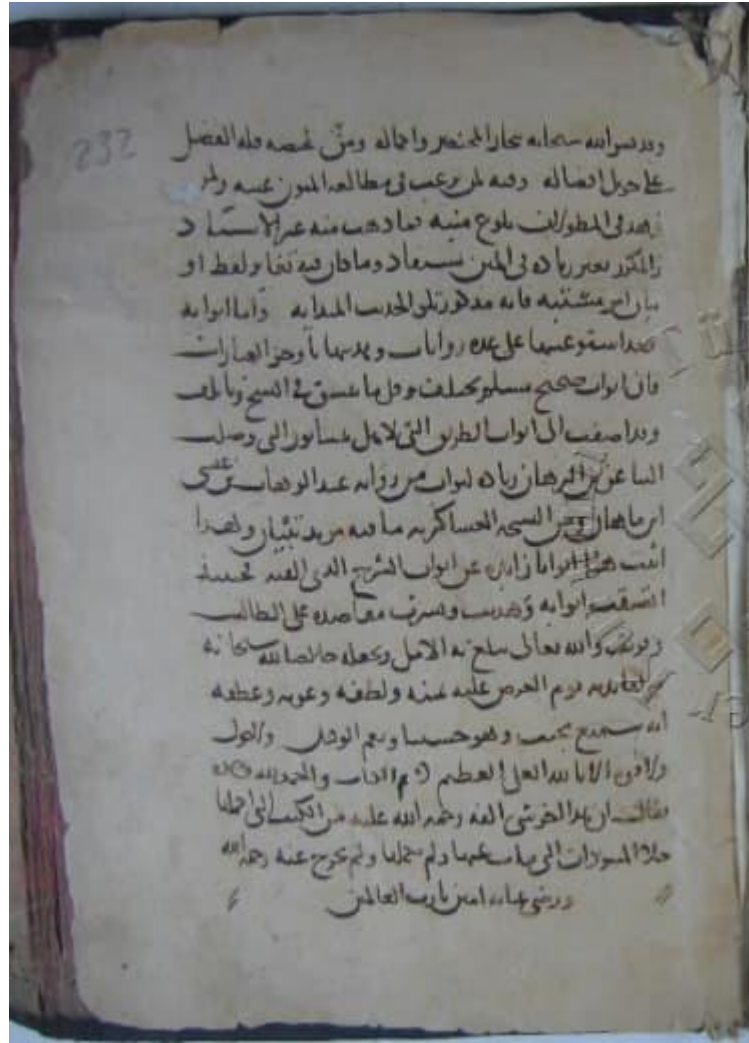 232
وقد يسر الله سبحانه نجاز المختصر واكماله ومن بمحضه فله الفضل
على جزيل افضاله وفيه لمن يرغب في مطالعة المتون غنية ولمن
زهد في المطولات بلوغ منية فما ذهب منه غير الاسناد
والمكرر بغير زيادة في المتن تستفاد وما كان فيه لفظ او
بيان امر مشتبه فانه مذكور تلو الحديث وأما ابوابه
على عدة روايات بأوجز العبارات
فان ابواب صحيح مسلم تختلف وقل ما تتسق في النسخ وتأتلف
وقد اضفت الى ابواب الطريق التي وصلت
الينا عن زيادة ابواب من رواية عبد الوهاب بن عيسى
ابن ماهان ومن النسخة العساكرية ما فيه مزيد تبيان ولهذا
ابوابا زايدة عن ابواب الشرح الذي الفته
اتسقت ابوابه وتقربت مقاصده على الطالب
والله تعالى يبلغ به الامل ويجعله خالصا لله سبحانه
الغرض عليه بمنه ولطفه وعونه وعطفه
انه سميع مجيب وهو حسبنا ونعم الوكيل ولا حول
ولا قوة الا بالله العلي العظيم تم الكتاب والحمد لله
الفه رحمة الله عليه من الكتب التي اكملها
خلا المسودات التي مات عنها ولم يكملها ولم تخرج عنه رحمه الله
ورضي عنه امين يا رب العالمين